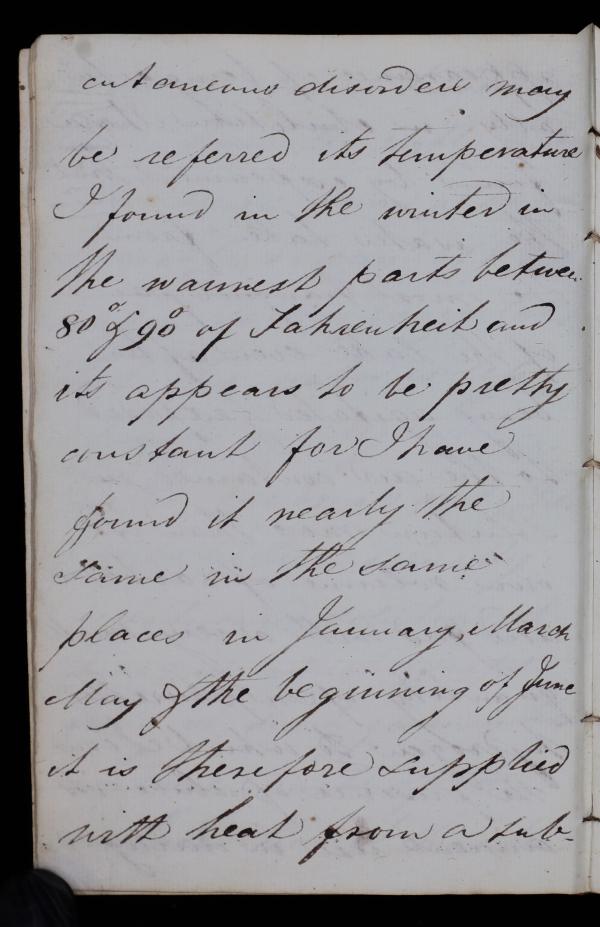 cutaneous disorders may
be referred its temperature
I found in the winter in
the warmest parts between
80° & 90° of Fahrenheit and
its appears to be pretty
constant for I have
found it nearly the
same in the same
places in January, March
May & the beginning of June
it is therefore supplied
with heat from a sub-